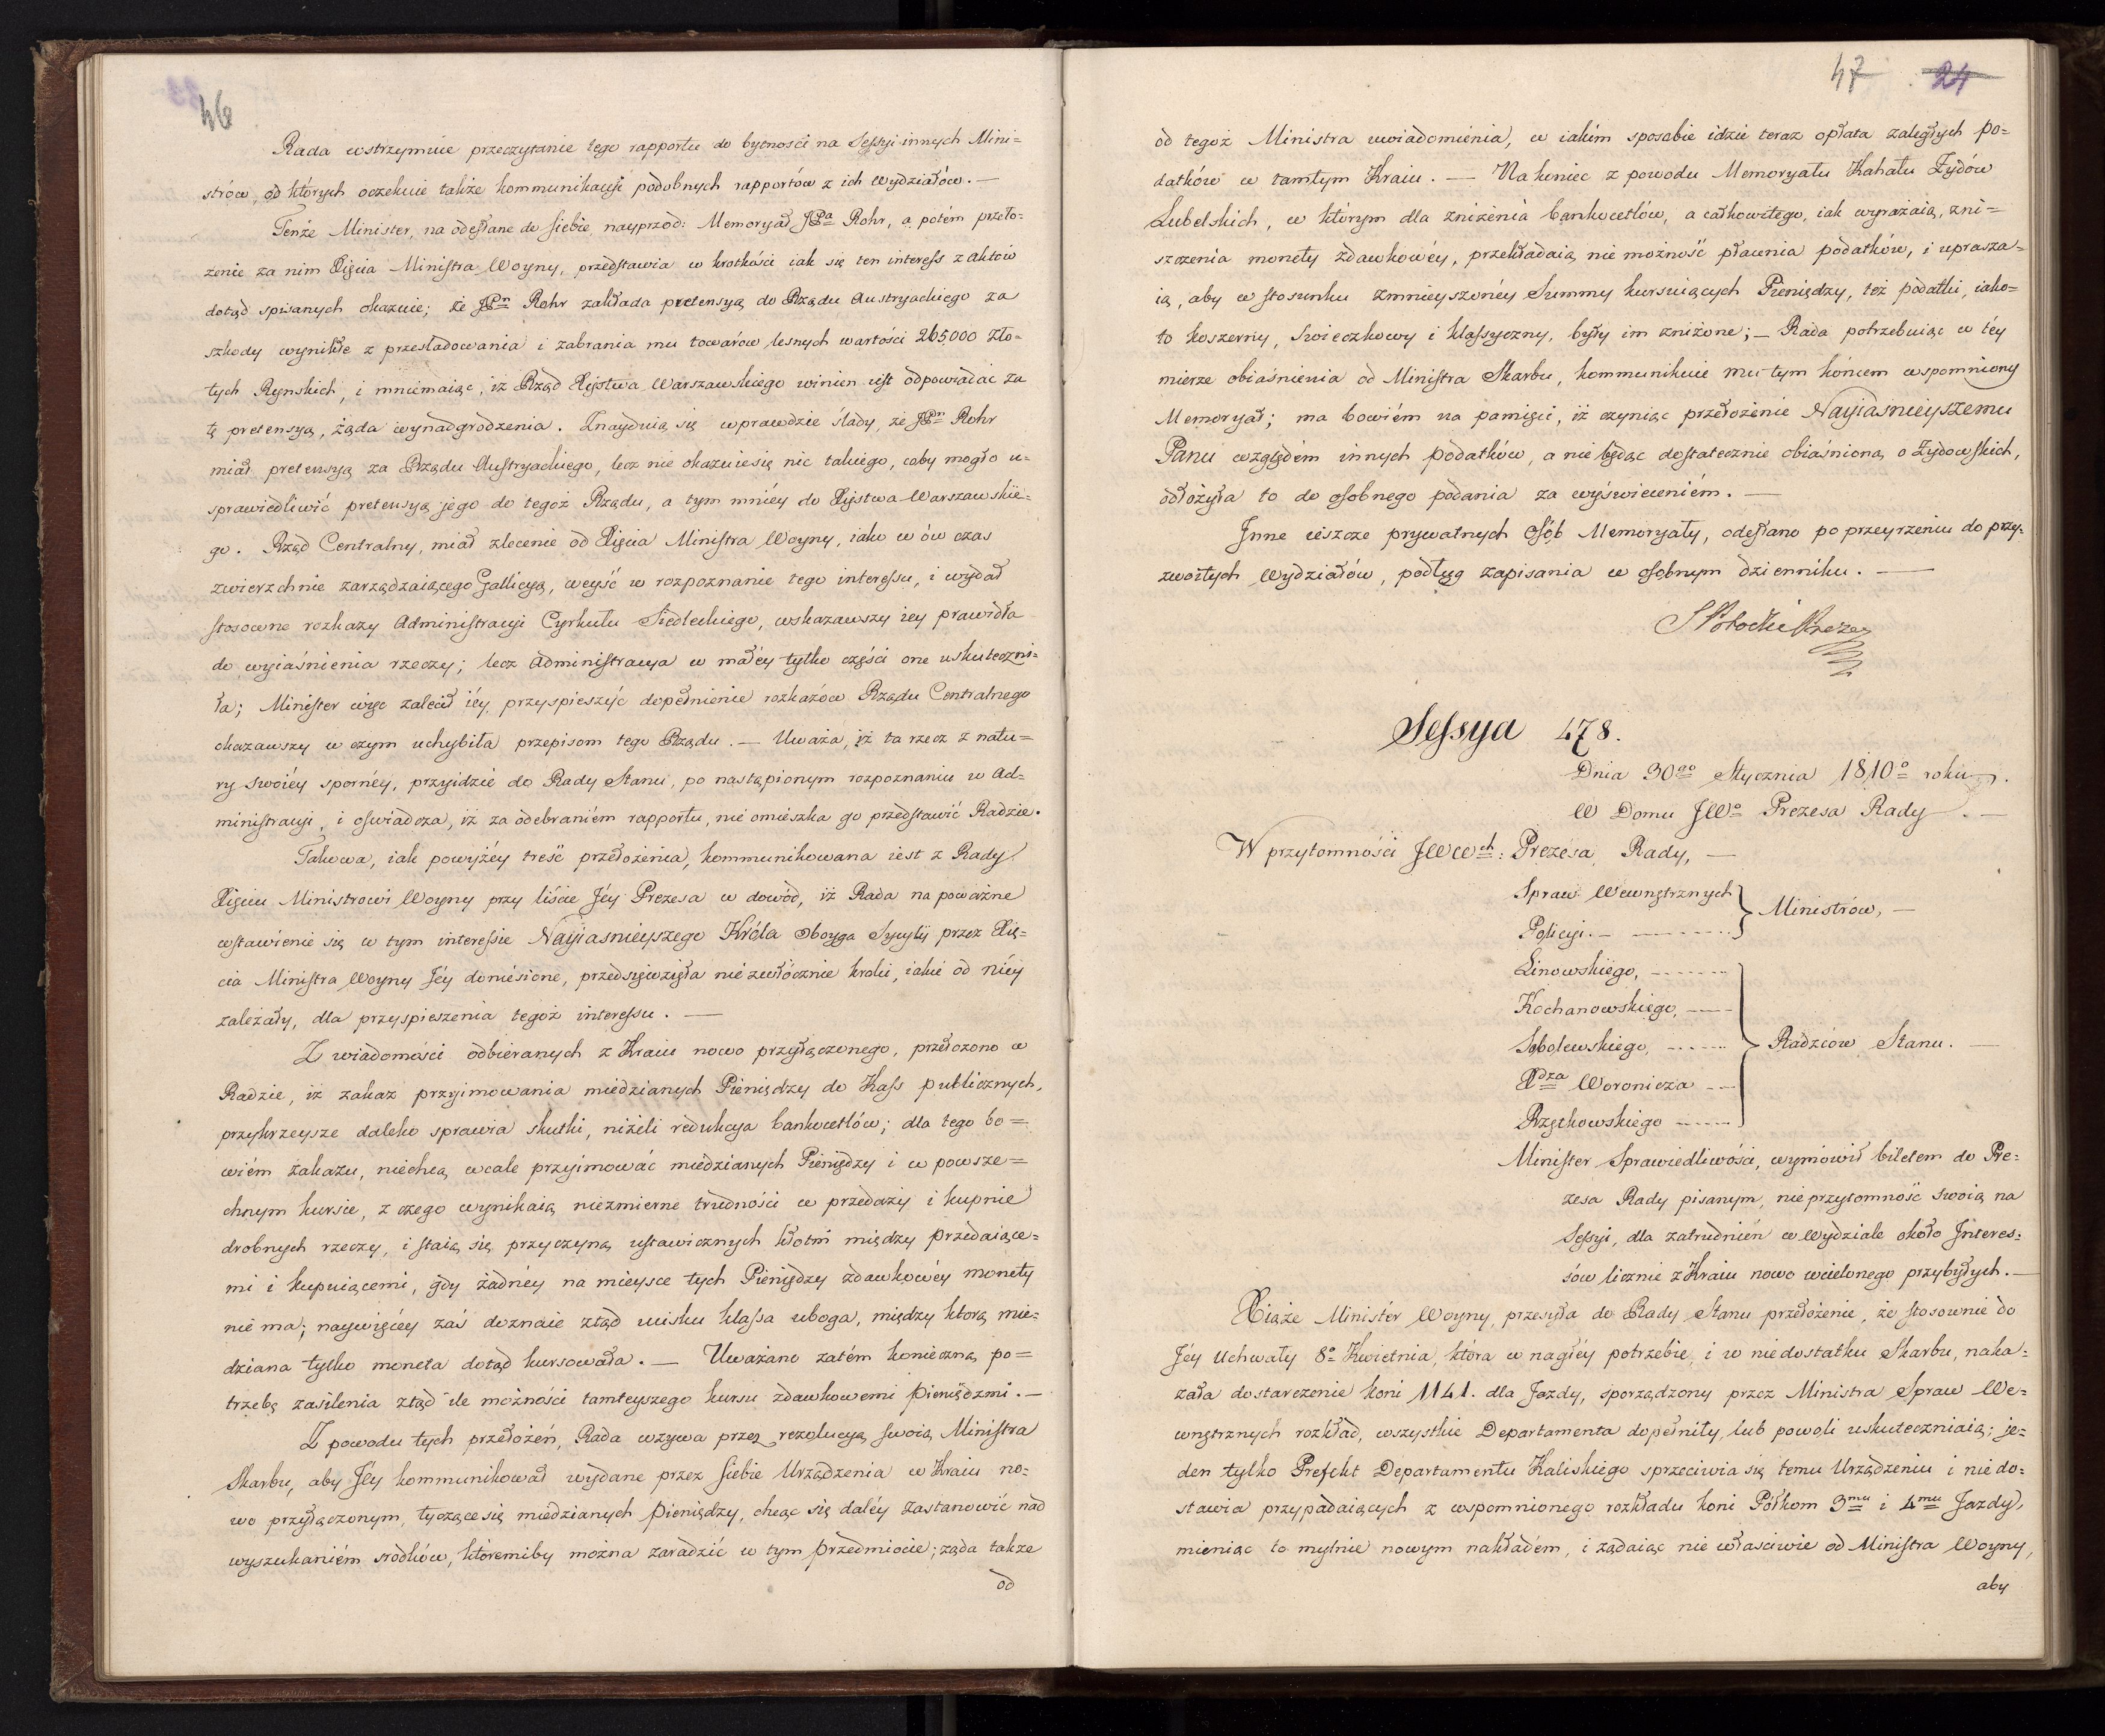 46
Rada wstrzymuie przeczytanie tego rapportu do bytności na Sessyi innych Mini=
strów, od których oczekuie także kommunikacyi podobnych rapportów z ich Wydziałów. —
Tenże Minister, na odesłane do siebie, nayprzod: Memoryał JPa Rohr, a potém przeło=
żenie za nim Xięcia Ministra Woyny, przedstawia w krotkości iak się ten interess z aktów
dotąd spisanych okazuie; że JPn Rohr zakłada pretensyą do Rządu Austryackiego za
szkody wynikłe z prześladowania i zabrania mu towarów lesnych wartości 265,000 Zło=
tych Rynskich, i mniemaiąc, iż Rząd Xięstwa Warszawskiego winien iest odpowiadać za
tę pretensyą, żąda wynadgrodzenia. Znayduią się wprawdzie ślady, że JPn Rohr
miał pretensyą za Rządu Austryackiego, lecz nie okazuie się nic takiego, coby mogło u=
sprawiedliwić pretensyą jego do tegoż Rządu, a tym mniéy do Xięstwa Warszawskie=
go. Rząd Centralny, miał zlecenie od Xięcia Ministra Woyny, iako w ów czas
zwierzchnie zarządzaiącego Gallicyą, weyść w rozpoznanie tego interessu, i wydał
stosowne rozkazy Administracyi Cyrkułu Siedleckiego, wskazawszy iey prawidła
do wyiaśnienia rzeczy; lecz Administracya w małéy tylko części one uskuteczni=
ła; Minister więc zalecił iéy przyspieszyć dopełnienie rozkazów Rządu Centralnego
okazawszy w czym uchybiła przepisom tego Rządu. — Uważa, iż ta rzecz z natu=
ry swoiéy sporney, przyidzie do Rady Stanu, po nastąpionym rozpoznaniu w Ad=
ministracyi, i oświadcza, iż za odebraniém rapportu, nie omieszka go przedstawić Radzie.
Takowa, iak powyżéy treść przełożenia, kommunikowana iest z Rady
Xięciu Ministrowi Woyny przy liście Jéy Prezesa w dowód, iż Rada na poważne
wstawienie się w tym interessie Nayiasnieyszego Króla Oboyga Sycylij przez Xię=
cia Ministra Woyny Jéy doniésione, przedsięwzięła niezwłócznie kroki, iakie od niéy
zależały, dla przyspieszenia tegoż interessu. —
Z wiadomości odbieranych z Kraiu nowo przyłączonego, przełożono w
Radzie, iż zakaz przyimowania miedzianych Pieniędzy do Kass publicznych,
przykrzeysze daleko sprawia skutki, niżeli redukcya bankocetlów; dla tego bo=
wiém zakazu, niechcą wcale przyimować miedzianych Pieniędzy i w powsze=
chnym kursie, z czego wynikaią niezmierne trudności w przedaży i kupnie
drobnych rzeczy, i staią się przyczyną ustawicznych kłotni między przedaiące=
mi i kupuiącemi, gdy żadnéy na mieysce tych Pieniędzy zdawkowéy monety
nie ma; naywięcéy zaś doznaie ztąd ucisku klassa uboga, między ktorą mie=
dziana tylko moneta dotąd kursowała. — Uważano zatém konieczną po=
trzebę zasilenia ztąd ile możności tamteyszego kursu zdawkowemi pieniędzmi. —
Z powodu tych przełożeń, Rada wzywa przez rezolucyą swoią Ministra
Skarbu, aby Jéy kommunikował wydane przez siebie Urządzenia w Kraiu no=
wo przyłączonym, tyczące się miedzianych pieniędzy, chcąc się daléy zastanowić nad
wyszukaniém srodków, któremiby można zaradzić w tym przedmiocie; żąda także
od
47 24
od tegoż Ministra uwiadomienia, w iakim sposobie idzie teraz opłata zaległych po=
datków w tamtym Kraiu. — Nakoniec z powodu Memoryału Kahału Żydów
Lubelskich, w którym dla zniżenia bankocetlów, a całkowitego, iak wyrażaią, zni=
szczenia monety zdawkowéy, przekładaią niemożność płacenia podatków, i uprasza=
ią, aby w stosunku zmnieyszonéy Summy kursuiących Pieniędzy, też podatki, iako=
to koszerny, swieczkowy i klassyczny, były im zniżone; — Rada potrzebuiąc w téy
mierze obiaśnienia od Ministra Skarbu, kommunikuie mu tym końcem wspomniony
Memoryał; ma bowiém na pamięci, iż czyniąc przełożenie Nayiasnieyszemu
Panu względém innych podatków, a nie będąc dostatecznie obiaśnioną o Żydowskich,
odłożyła to do osobnego podania za wyświeceniém. —
Inne ieszcze prywatnych Osób Memoryały, odesłano po przeyrzeniu do przy=
zwoitych Wydziałów, podług zapisania w osobnym dzienniku. —
S Potocki Prezes
Sessya 478.
Dnia 30go Stycznia 1810o roku.
W Domu JWo Prezesa Rady. —
W przytomności JWWch: Prezesa Rady, —
Spraw Wewnętrznych
Policyi. — } Ministrów, —
Linowskiego,
Kochanowskiego,
Sobolewskiego, } Radzców Stanu. —
Xdza Woronicza
Rzętkowskiego
Minister Sprawiedliwości, wymówił biletem do Pre=
zesa Rady pisanym, nieprzytomność swoią na
Sessyi, dla zatrudnień w Wydziale około Interes=
sów licznie z Kraiu nowo wcielonego przybyłych. —
Xiąże Minister Woyny, przesyła do Rady Stanu przełożenie, że stosownie do
Jéy Uchwały 8o Kwietnia, która w nagłéy potrzebie, i w niedostatku Skarbu, naka=
zała dostarczenie koni 1141. dla Jazdy, sporządzony przez Ministra Spraw We=
wnętrznych rozkład, wszystkie Departamenta dopełniły, lub powoli uskuteczniaią; je=
den tylko Prefekt Departamentu Kaliskiego sprzeciwia się temu Urządzeniu i nie do=
stawia przypadaiących z wspomnionego rozkładu koni Półkom 3mu i 4mu Jazdy,
mieniąc to mylnie nowym nakładém, i żądaiąc nie własciwie od Ministra Woyny,
aby